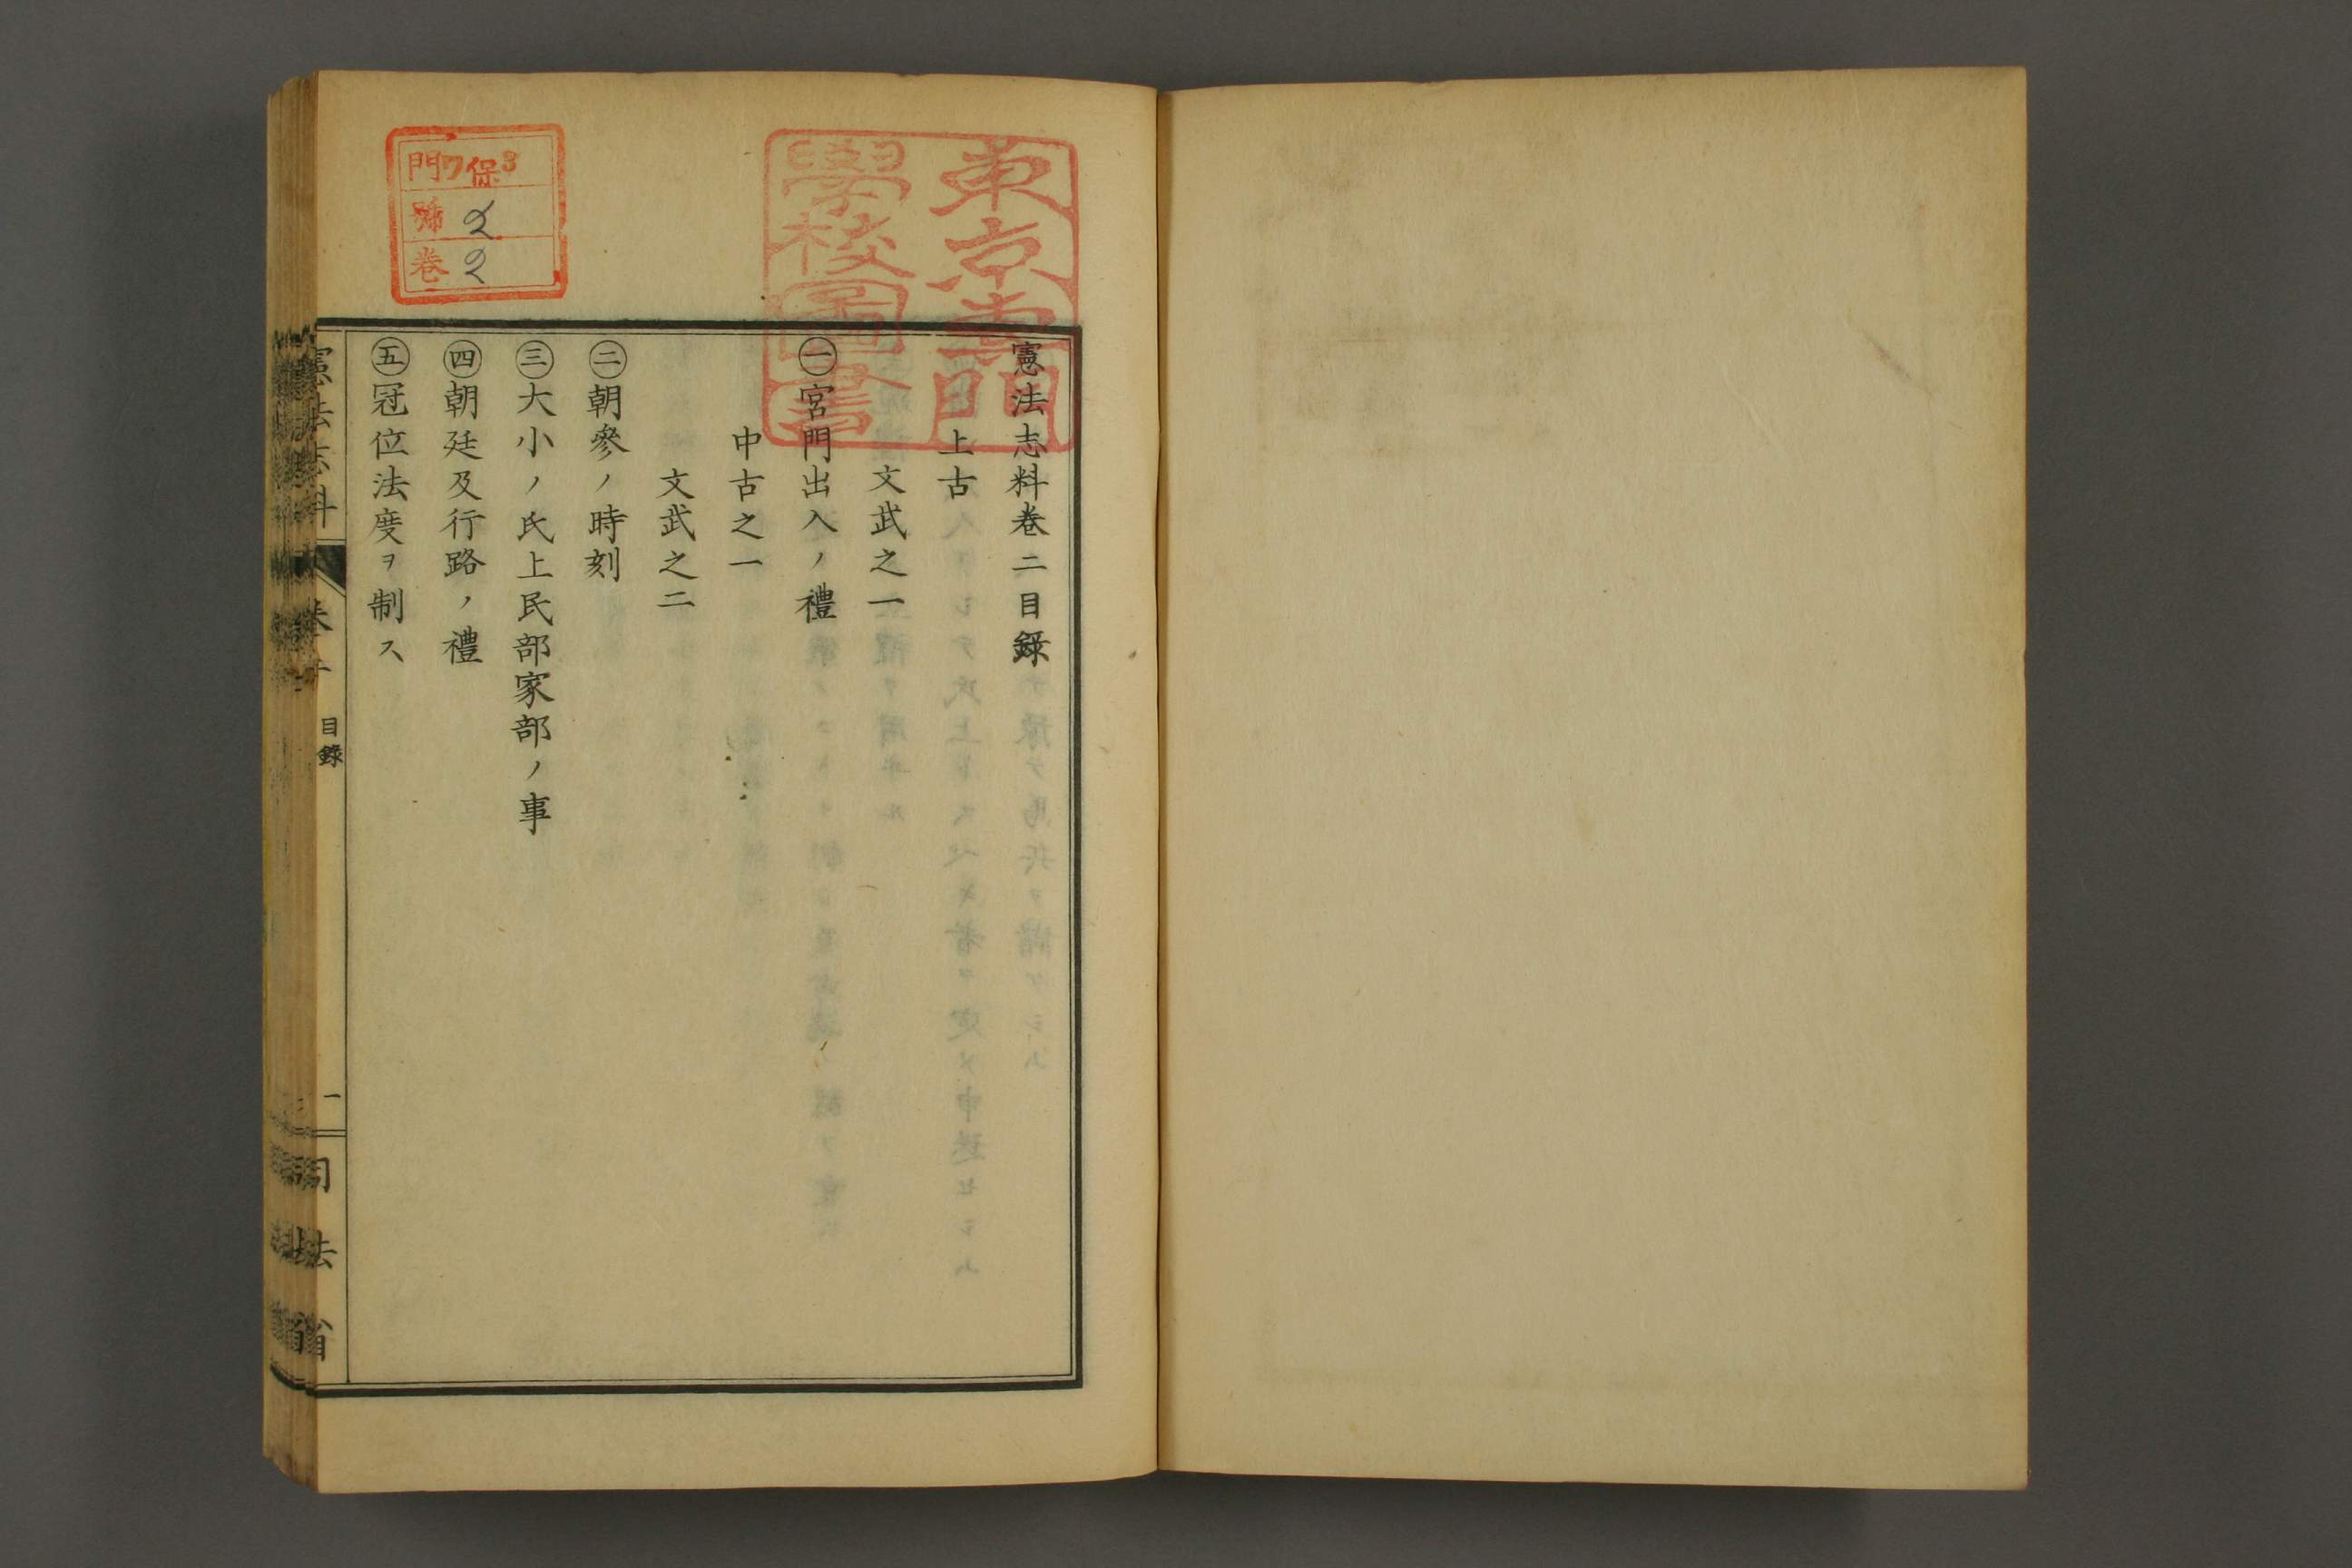 憲法志料卷二目錄
上古
文武之一
㊀宮門出入ノ禮
中古之一
文武之二
㊁朝參ノ時刻
㊂大小ノ氏上民部家部ノ事
㊃朝廷及行路ノ禮
㊄冠位法度ヲ制ス
憲法志料
卷二
目錄
一
司法省
東京專門
學校圖書
門ワ保3
號2
卷2